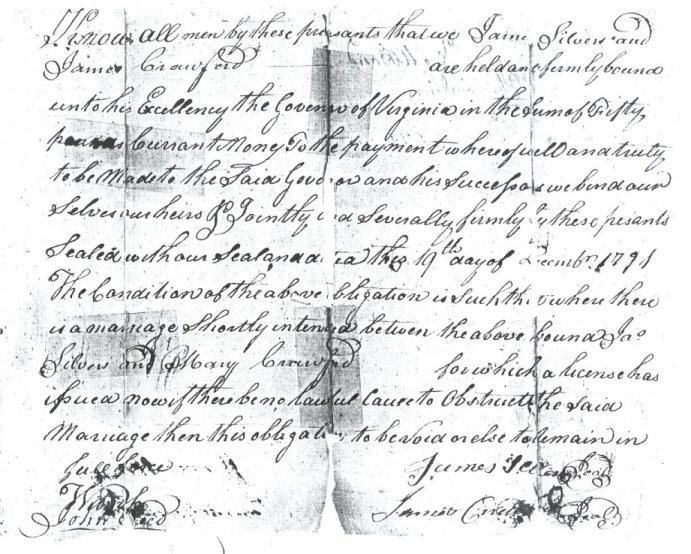 Know All men by these presants that we Jame Silvers and
James Crawford are held and firmly bound
unto his Excellency the Govenor of Virginia in the Sum of Fifty
pounds Currant Money To the payment whereof well and truly
to be Made to the Said Govenor and his Successors we bend our
Selves our heirs &c Jointly and Severally firmly by these presants
Sealed with our Seal and dated this 19th day of Decembr 1791
The Condition of the above obligation is Such that where there
is a marriage Shortly intended between the above bound Jas
Silvers and Mary Crawford for which a license has
issued now if there be no lawful Cause to Obstruct the Said
Marriage then this obligation to be void or else to Remain in
full force James Seal
James Seal
John